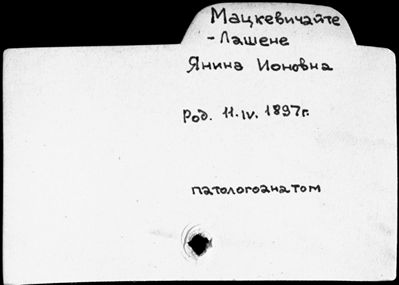 Мацкевичайте
-Лашене
Янина Ионовна
Род. 11.IV.1897г.
патологоанатом